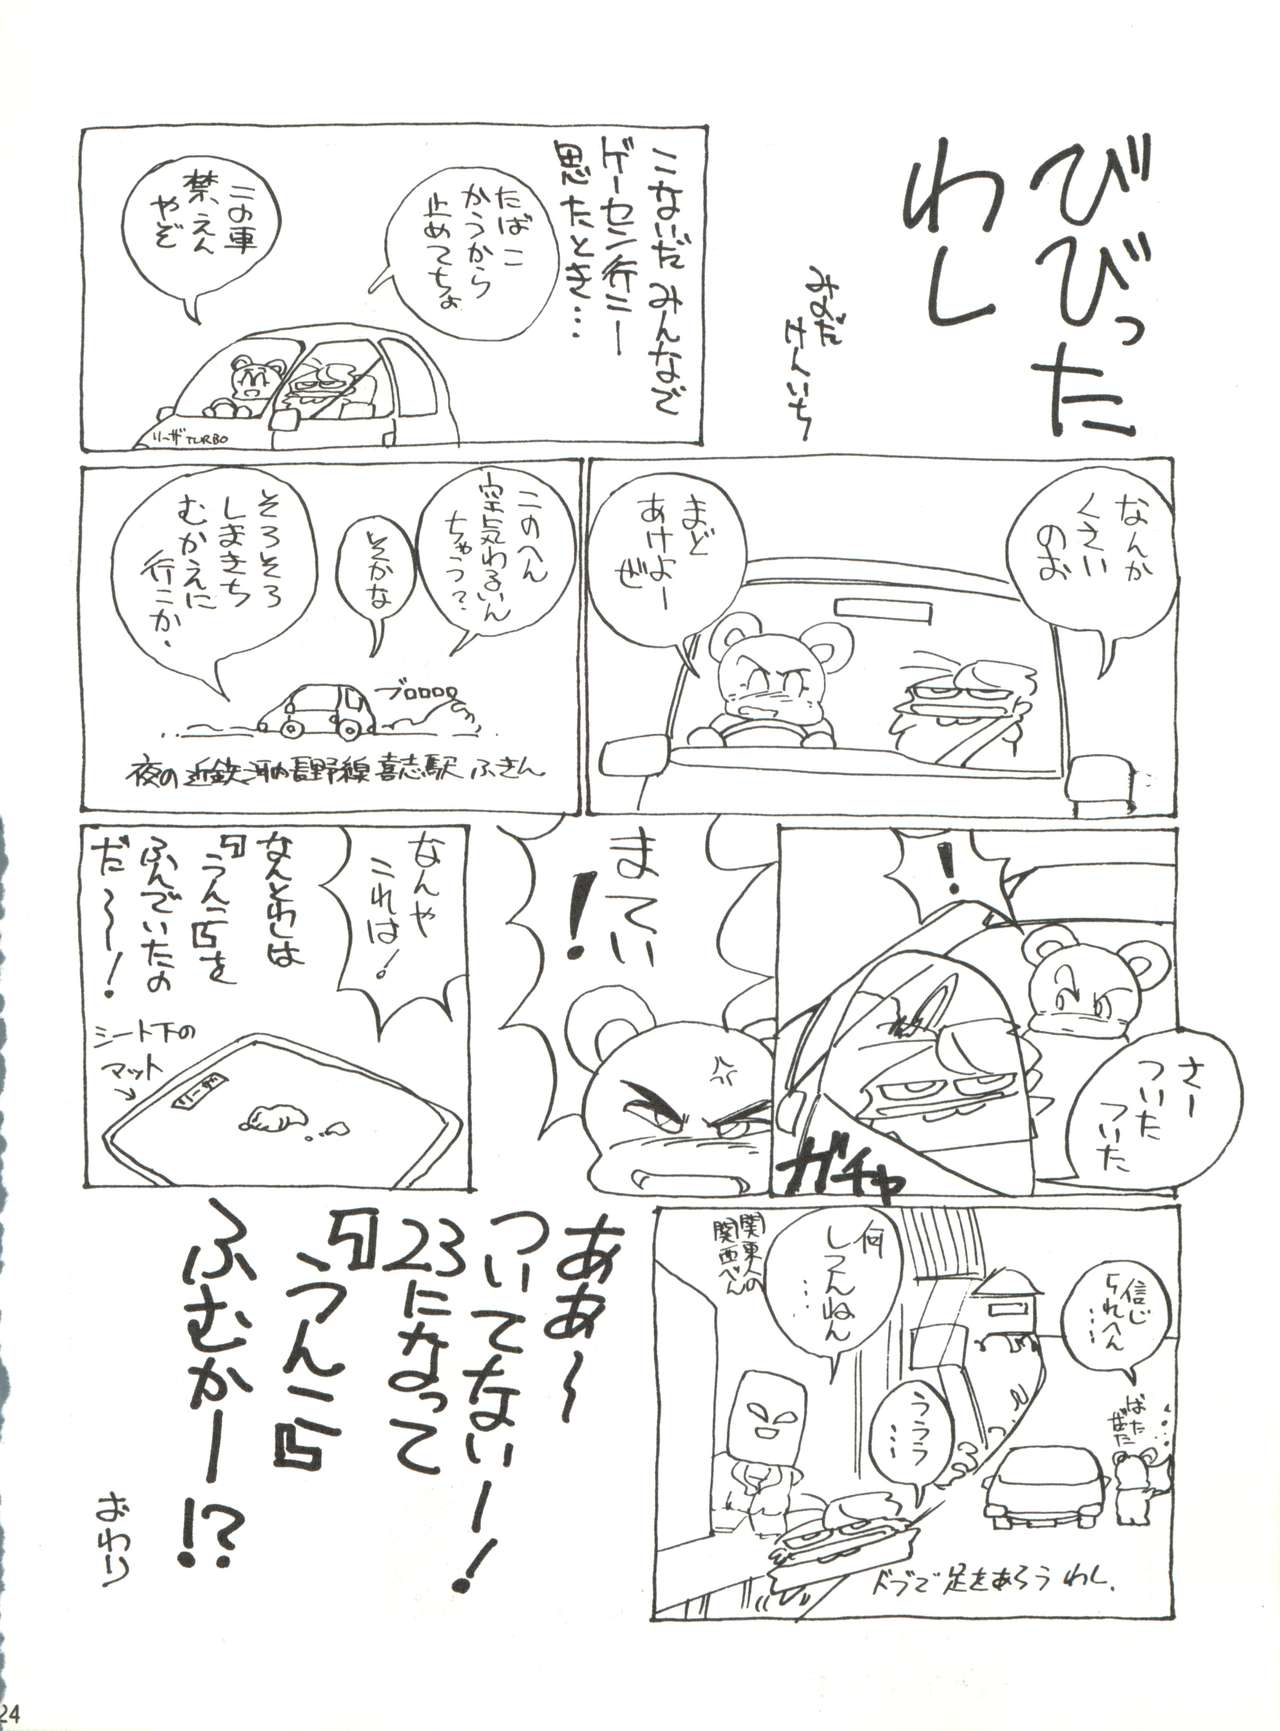 びびった
わし
みのだ
けんいち
こないだみんなで
ゲーセン行こー
思たとき…
たばこ
かうから
止めてちょ
この車
禁えん
やぞ
リーザTURBO
なんか
くさい
のお
まど
あけよー
ぜ
このへん
空気わるいん
ちゃう?
そかな
そろそろ
しまきち
むかえに
行こか・
ブロロロロ
夜の近鉄河内長野線喜志駅ふきん
!
さー
ついた
ついた
ガチャ
まてい
!
なんや
これは!
なんとわしは
『うんこ』を
ふんでいたの
だ〜〜!
シート下の
マット
リーザ
信じ
られへん
……
ばた
ばた
何
しとんねん
……
関東人の
関西べん
ううう
……
ドブで足をあらうわし.
ああ〜
ついてないー!
23になって
『うんこ』
ふむかー!?
おわり
24